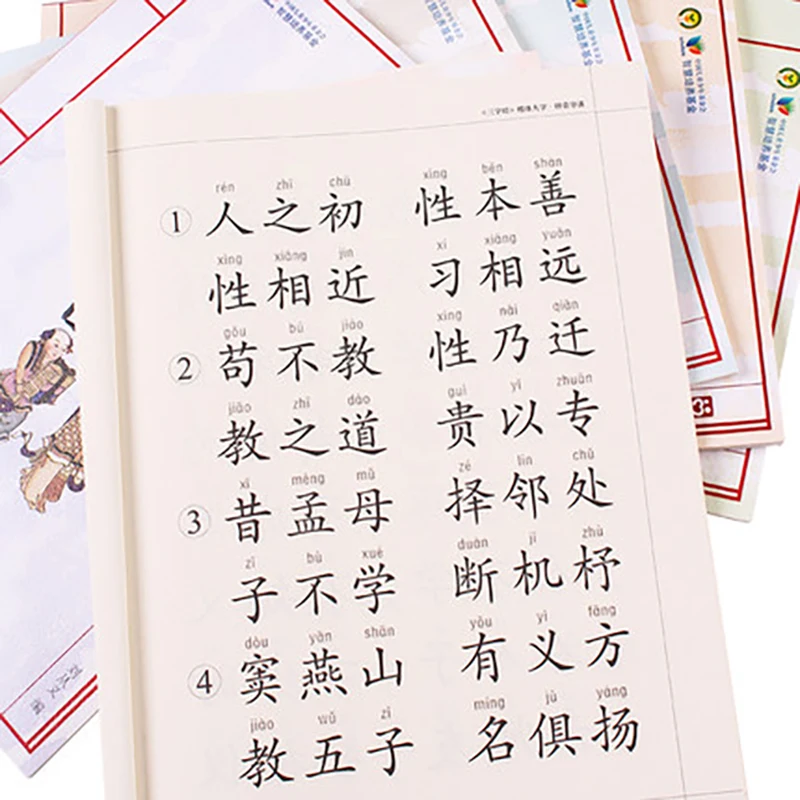 《三字经》楷体大字·拼音诵读
rén zhī chū xìng běn shàn
① 人之初 性本善
xìng xiāng jìn xí xiāng yuǎn
性相近 习相远
gǒu bú jiào xìng nǎi qiān
② 苟不教 性乃迁
jiào zhī dào guì yǐ zhuān
教之道 贵以专
xī mèng mǔ zé lín chǔ
③ 昔孟母 择邻处
zǐ bù xué duàn jī zhù
子不学 断机杼
dòu yān shān yǒu yì fāng
④ 窦燕山 有义方
jiào wǔ zǐ míng jù yáng
教五子 名俱扬